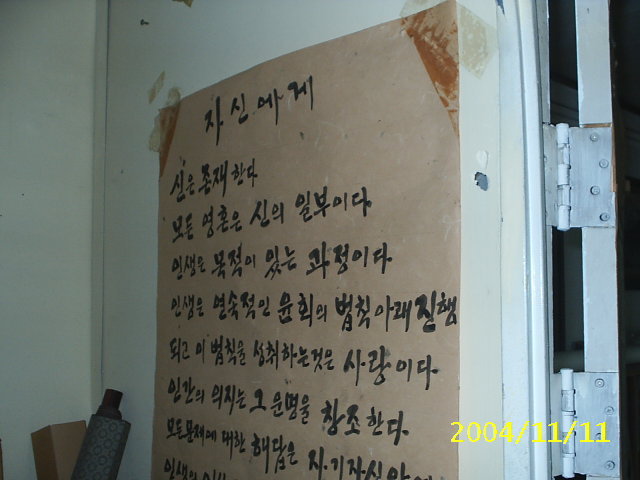 자신에게
신은 존재한다
모든 영혼은 신의 일부이다.
인생은 목적이 있는 과정이다.
인생은 연속적인 윤회의 법칙아래 진행
되고 이 법칙을 성취하는것은 사랑이다.
인간의 의지는 그 운명을 창조한다.
모든문제에 대한 해답은 자기자신안에
인생의
2004/11/11